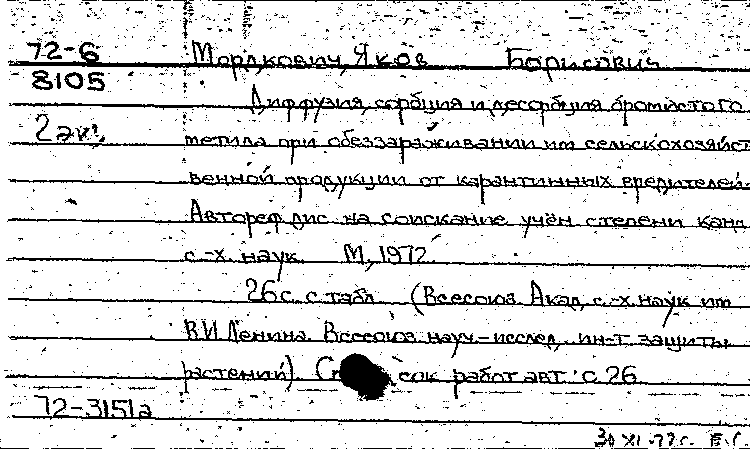 72-6 Мордкович, Яков Борисович
8105
Диффузия, сорбция и десорбция бромистого
2 экз. метила при обеззараживании им сельскохозяйст
венной продукции от карантинных вредителей.
Автореф дис. на соискание учён степени канд
с.-х. наук. М, 1972.
26 с. с табл. (Всесоюз Акад. с.-х. наук им
В.И Ленина. Всесоюз науч-исслед. ин-т защиты
растений). Список работ авт. с 26
72-3151а
30 XI-72 г. Е.С.